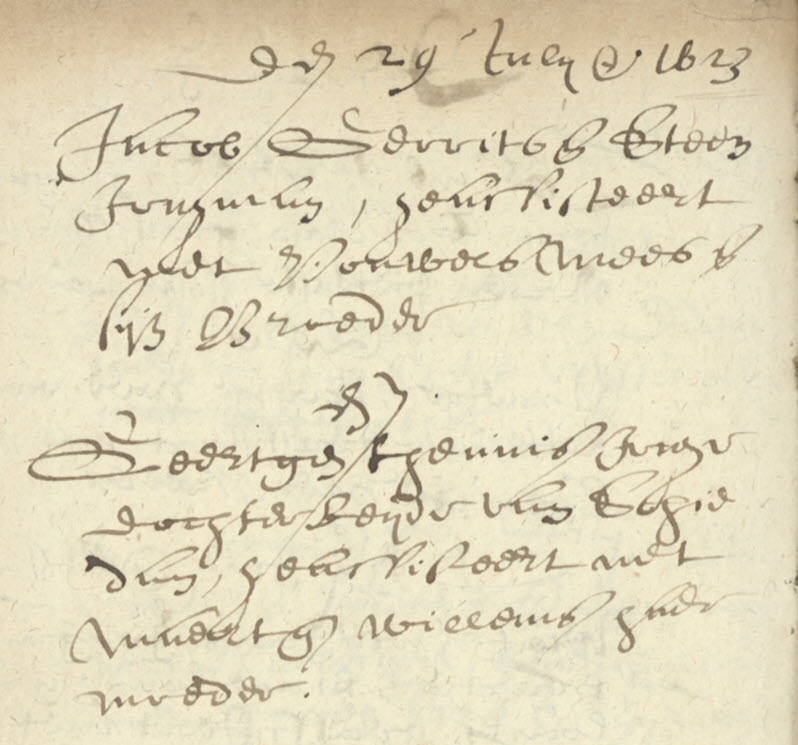 den 29 July @ 1623
Jacob Gerritss Steen
Jongman, geassisteert
met Pouwels Mees s
sijn Broeder
en
Geertgen theunis Jonge
dochter beyde van Schie
dam, geassisteert met
Maertge willems haer
moeder.